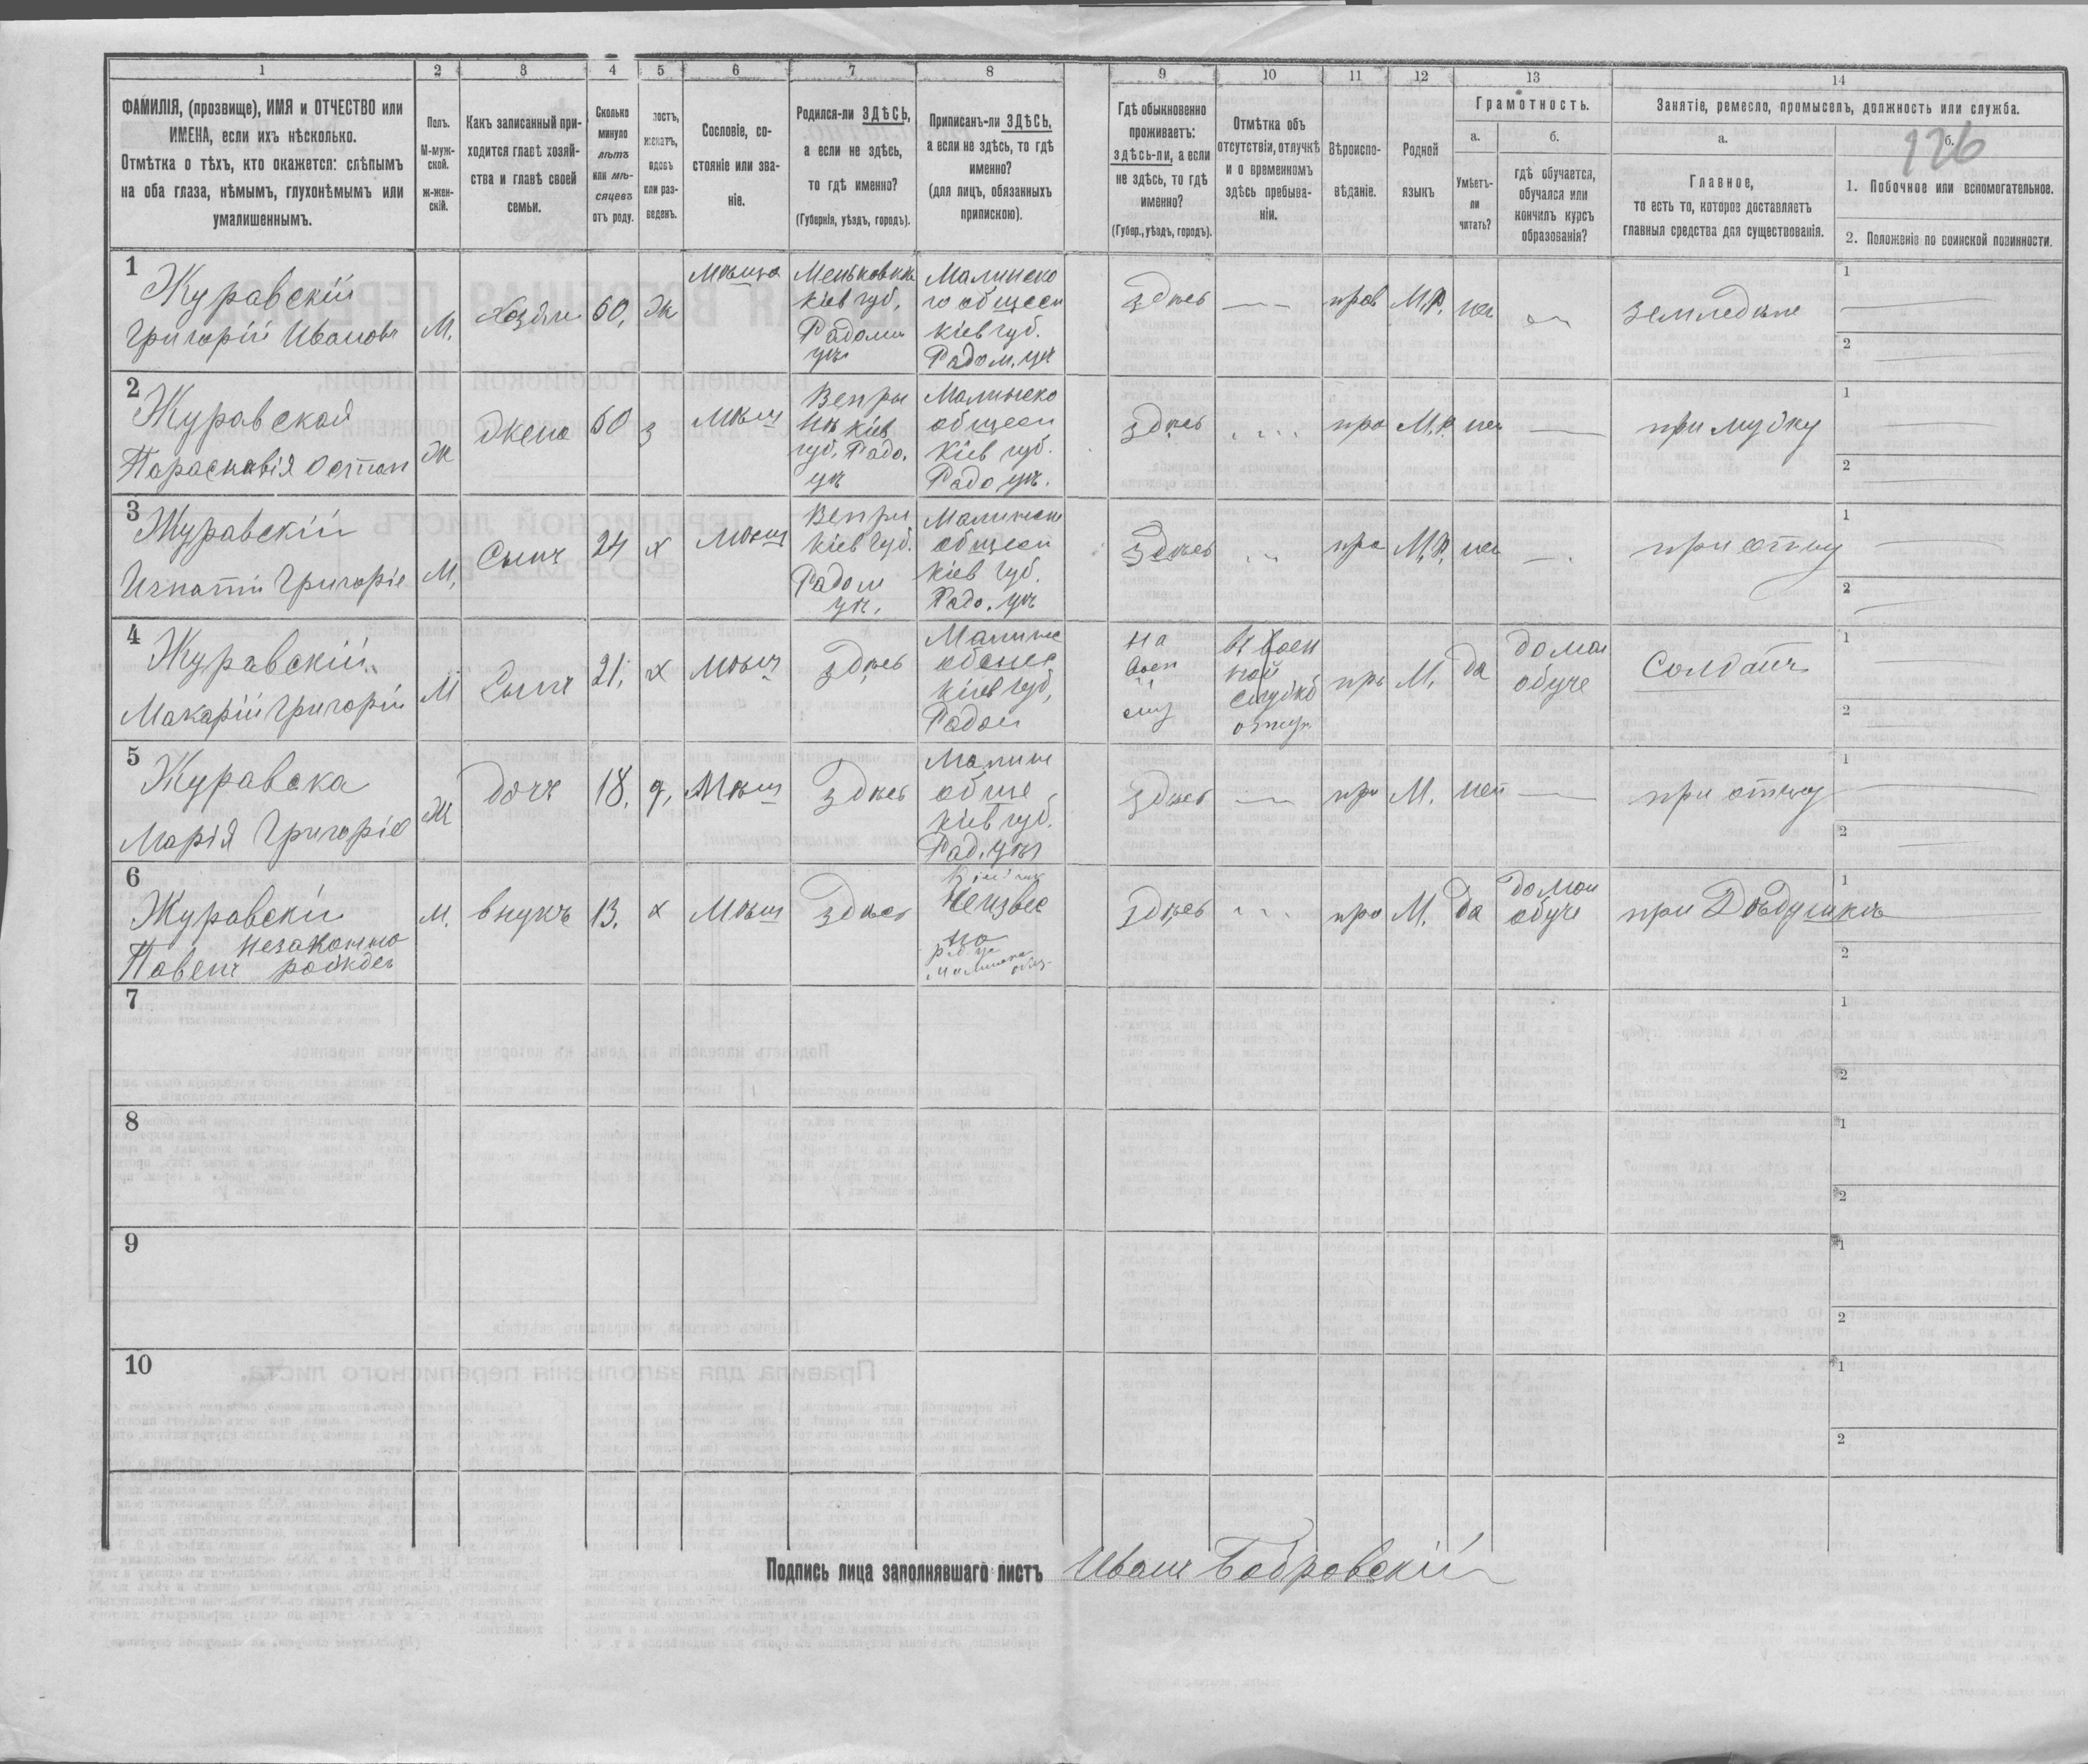 1 2 3 4 5 6 7 8 9 10 11 12 13 14
ФАМИЛІЯ, (прозвище), ИМЯ и ОТЧЕСТВО или
ИМЕНА, если ихъ нѣсколько.
Отмѣтка о тѣхъ, кто окажется: слѣпымъ
на оба глаза, нѣмымъ, глухонѣмымъ или
умалишеннымъ.
Полъ.
М-муж-
ской.
ж-жен-
скій.
Какъ записанный при-
ходится главѣ хозяй-
ства и главѣ своей
семьи.
Сколько
минуло
лѣтъ
или мѣ-
сяцевъ
отъ роду.
лостъ,
женатъ,
вдовъ
или раз-
веденъ.
Сословіе, со-
стояніе или зва-
ніе.
Родился-ли ЗДѢСЬ,
а если не здѣсь,
то гдѣ именно?
(Губернія, уѣздъ, городъ).
Приписанъ-ли ЗДѢСЬ,
а если не здѣсь, то гдѣ
именно?
(для лицъ, обязанныхъ
припискою).
Гдѣ обыкновенно
проживаетъ:
здѣсь-ли, а если
не здѣсь, то гдѣ
именно?
(Губер., уѣздъ, городъ).
Отмѣтка объ
отсутствіи, отлучкѣ
и о временномъ
здѣсь пребыва-
ніи.
Вѣроиспо-
вѣданіе.
Родной
языкъ
Грамотность.
а.
Умѣетъ-
ли
читать?
б.
гдѣ обучается,
обучался или
кончилъ курсъ
образованія?
Занятіе, ремесло, промыселъ, должность или служба.
а.
Главное,
то есть то, которое доставляетъ
главныя средства для существованія.
б.
126
1. Побочное или вспомогательное.
2. Положеніе по воинской повинности.
1
Журавскій
Григорій Ивановъ
М.
Хозяи
60.
ж
Мѣща
Кіев губ,
Радом
уѣ
Малинско
го общест
Кіев губ.
Радом. уѣ
здѣсь
—
прав
М.Р.
нет
—
земледѣліе
1
2
2
Журавская
Парасковія Остап
ж
жена
60
з
Мѣщ
Вепры
Кіев
губ. Радо.
уѣ
Малинско
общест
Кіев губ.
Радо уѣ.
здѣсь
пра
М.Р.
нет
—
при мужу
1
2
3
Журавскій
Игнатій Григоріе
М.
Сынъ
24
х
Мѣщ
Вепри
Кіев губ.
Радом
уѣ.
Малинск
общест
Кіев губ.
Радо. уѣ
здѣсь
пра
М.Р.
нет
—
при отцу
1
2
4
Журавскій
Макарій Григорій
М
Сынъ
21.
х
Мѣщ
здѣсь
Малинс
Кіев губ,
Радом
на
воен
служ
въ воен
ной
службѣ
пра
М.
да
дома
обуче
Солдатъ
1
2
5
Журавска
Марія Григоріе
ж
дочь
18.
д.
Мѣщ
здѣсь
Малин
обще
Кіев губ.
Рад. уѣз
здѣсь
—
пра
М.
нет
—
при отцу
1
2
6
Журавскій
незаконно
Павелъ рожден
м.
внукъ
13.
х
Мѣщ
здѣсь
Неизвес
но
здѣсь
пра
М.
да
домом
обуче
при Дѣдушкѣ
1
2
7
1
2
8
1
2
9
1
2
10
1
2
Подпись лица заполнявшаго листъ Иванъ Бобровскій